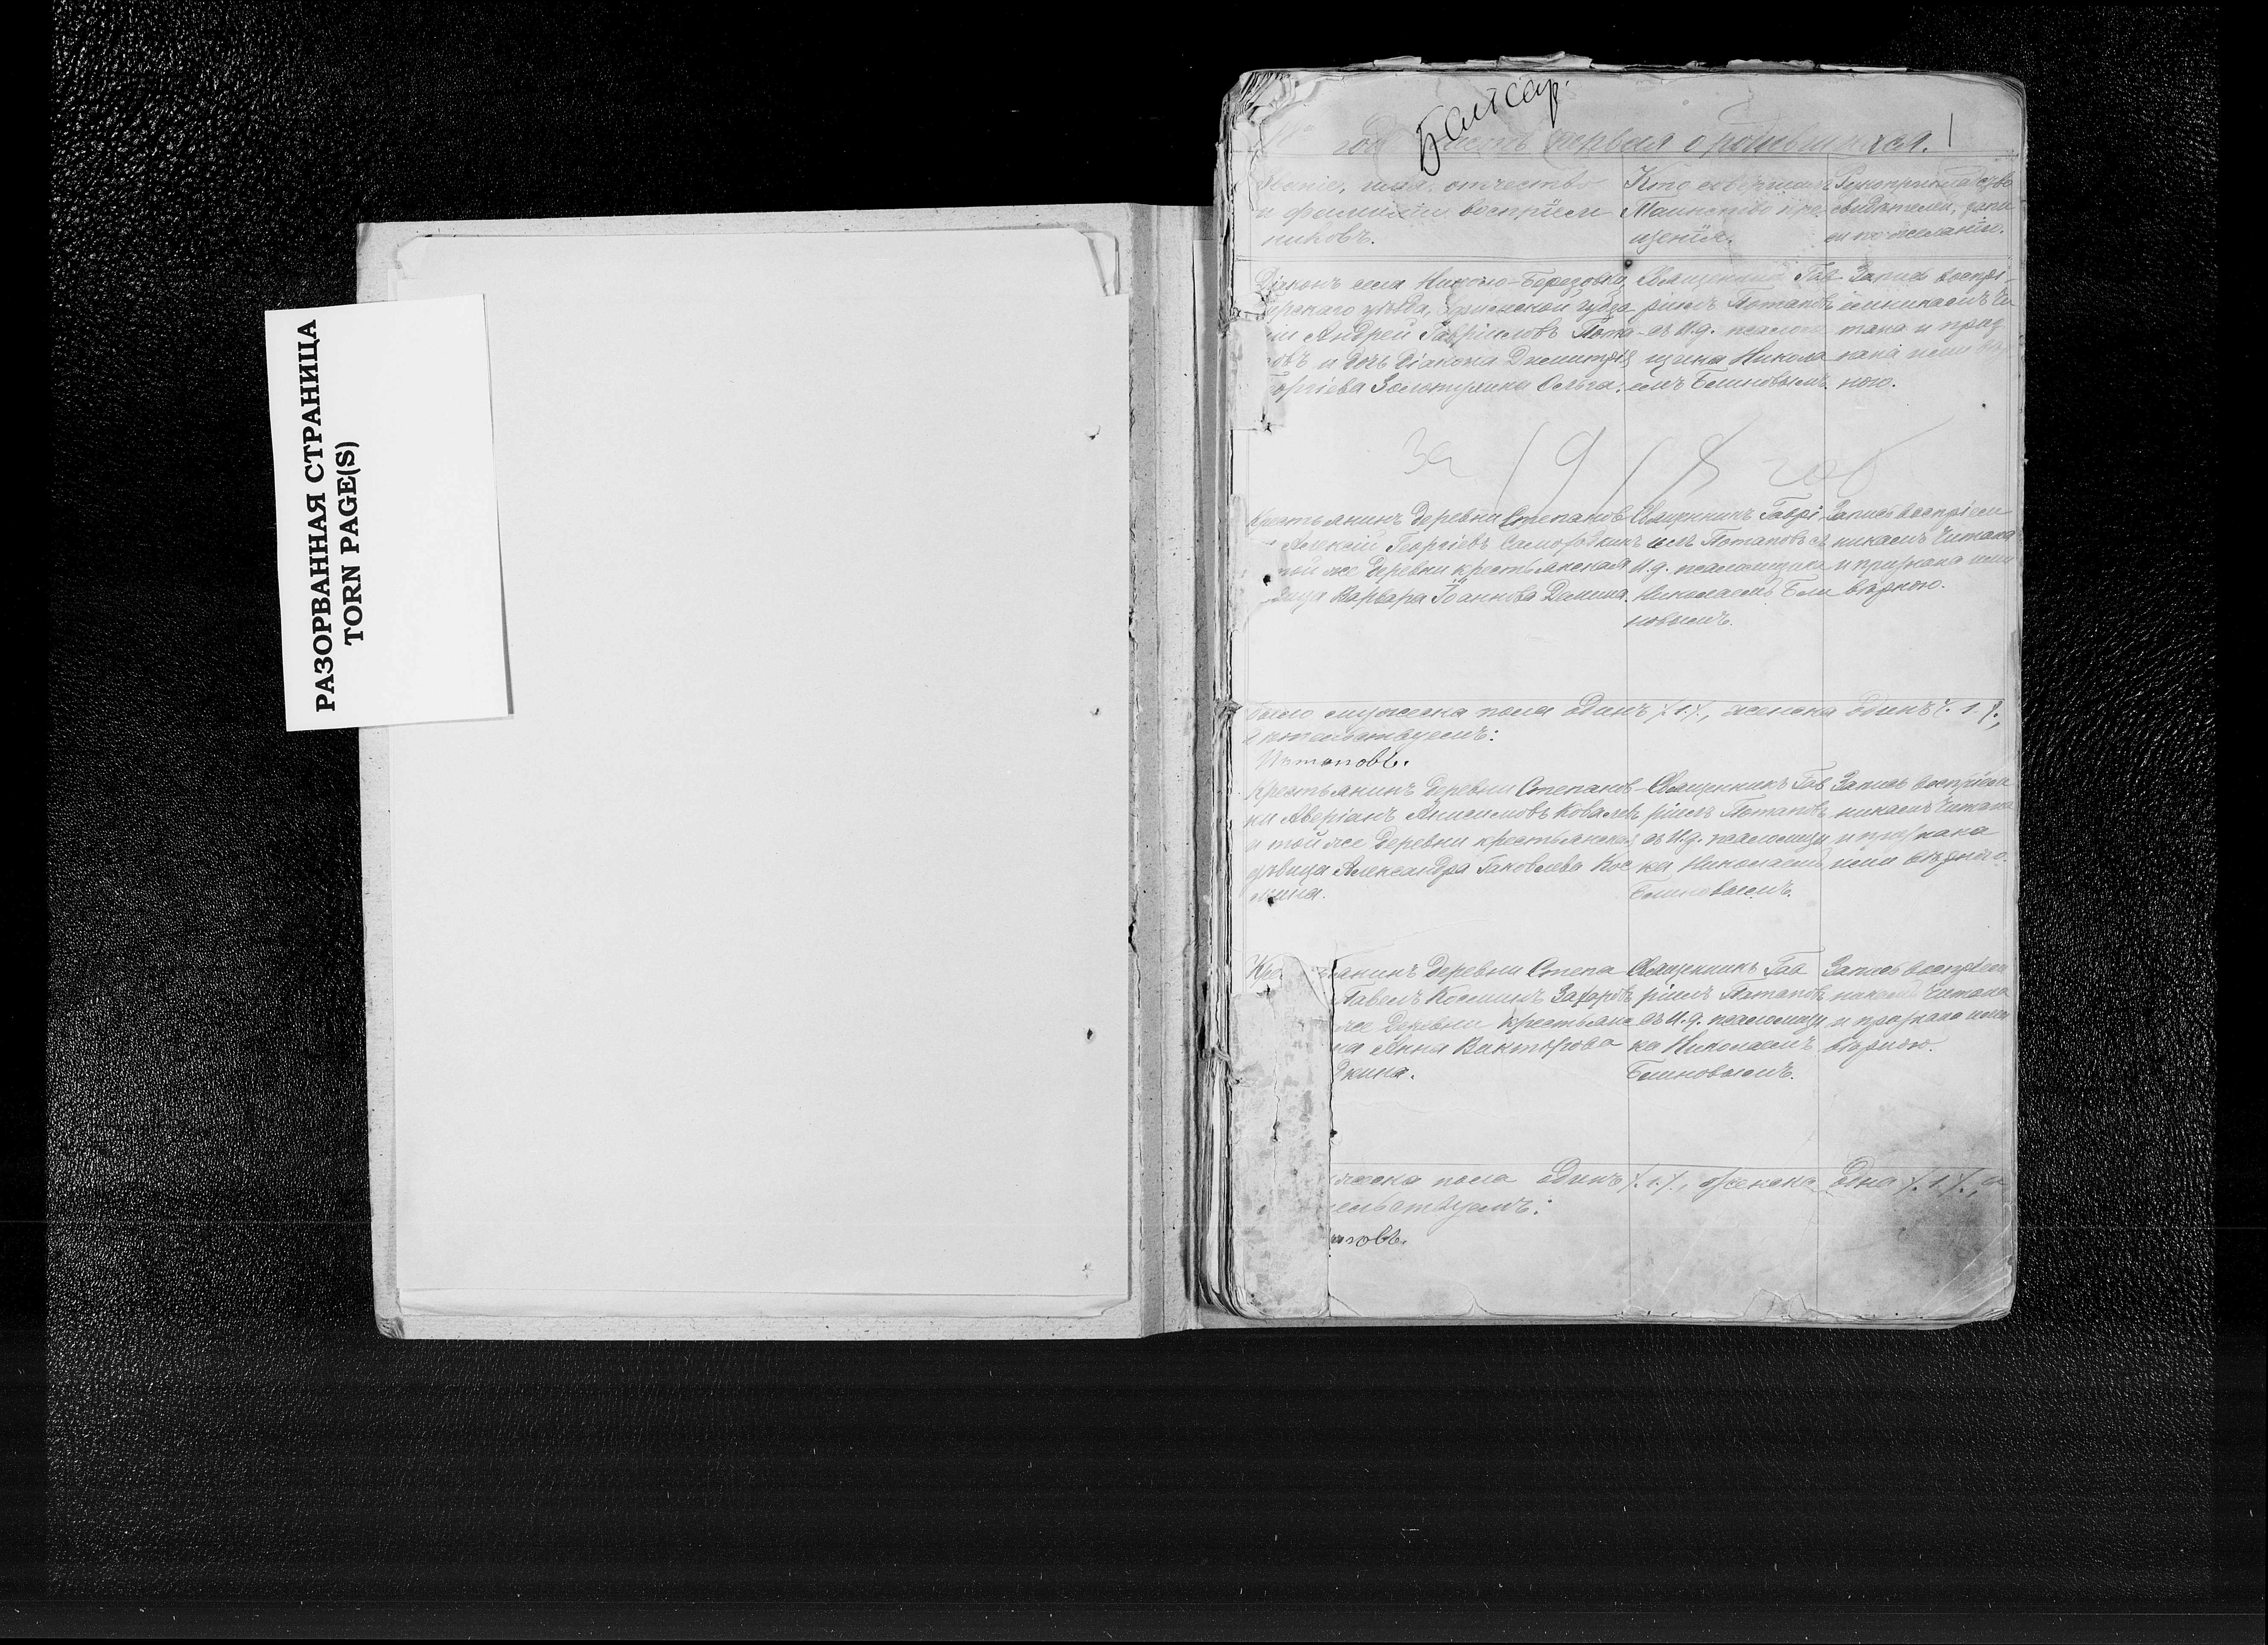 РАЗОРВАННАЯ СТРАНИЦА
TORN PAGE(S)
часть первая о родившихся. 1
Званіе, имя, отчество
и фамилія воспріем
никовъ.
Кто совершалъ
Таинство кре
щенія.
Рукоприкладство
свидѣтелей, запи
си по желанію.
Діаконъ села Николо-Березовки
уѣзда, губер
ніи Андрей Гавріиловъ Пота
овъ и дочь діакона Димитрія
Ольга.
Священникъ Гав
ріилъ Потаповъ
съ И.д. псалом
щика Никола
емъ Блиновымъ.
Запись воспрі
емникамъ чи
тана и приз
нана ими вѣр
ною.
За 1918 год
Крестьянинъ деревни Степанов
Алексій Георгіевъ Самородкинъ
той же деревни крестьянская
вица Варвара Іоаннова
Священникъ Гаврі
илъ Потаповъ съ
И.д. псаломщика
Николаемъ Бли
новымъ.
Запись воспріем
никамъ читана
и признана ими
вѣрною.
было мужеска пола одинъ /.1./, женска одинъ /.1./,
Потаповъ.
Крестьянинъ деревни Степанов
ки Аверіанъ Анисимовъ Ковалевъ
и той же деревни крестьянская
дѣвица Александра Іаковлева Кос
мина.
Священникъ Гав
ріилъ Потаповъ
съ И.д. псаломщи
ка Николаемъ
Блиновымъ.
Запись воспріем
никамъ читана
и признана
ими вѣрною.
Кре янинъ деревни Степа
Павелъ Косминъ Захаровъ
же деревни крестьянс
на Анна Викторова
дкина.
Священникъ Гав
ріилъ Потаповъ
съ И.д. псаломщи
ка Николаемъ
Блиновымъ.
Запись воспріем
никамъ читана
и признана ими
вѣрною.
жеска пола одинъ /.1./, женска одна /.1./, и
ельствуемъ:
повъ.